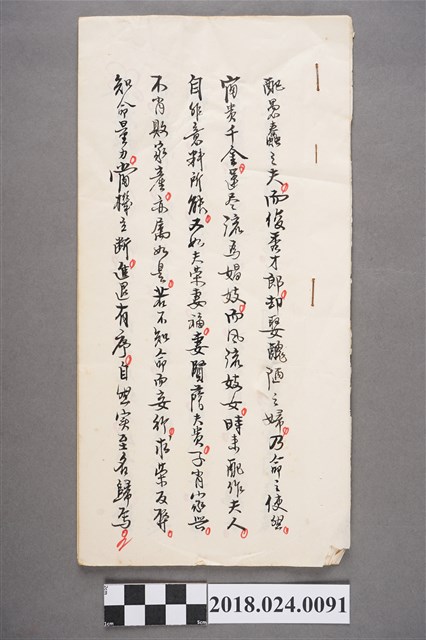 配愚蠢之夫。而俊秀才郎。却娶醜陋之婦。乃命之使然。
富貴千金。運尽流為娼妓。而風流妓女。時来配作夫人。
自作意料所能。又如夫榮妻福。妻賢蔭夫貴。子肖家興。
不肖敗家產。亦属如是。若不知命而妄行。求榮反弊。
知命量力。當機立断。進退有序。自然实至名歸焉。
2018.024.0091